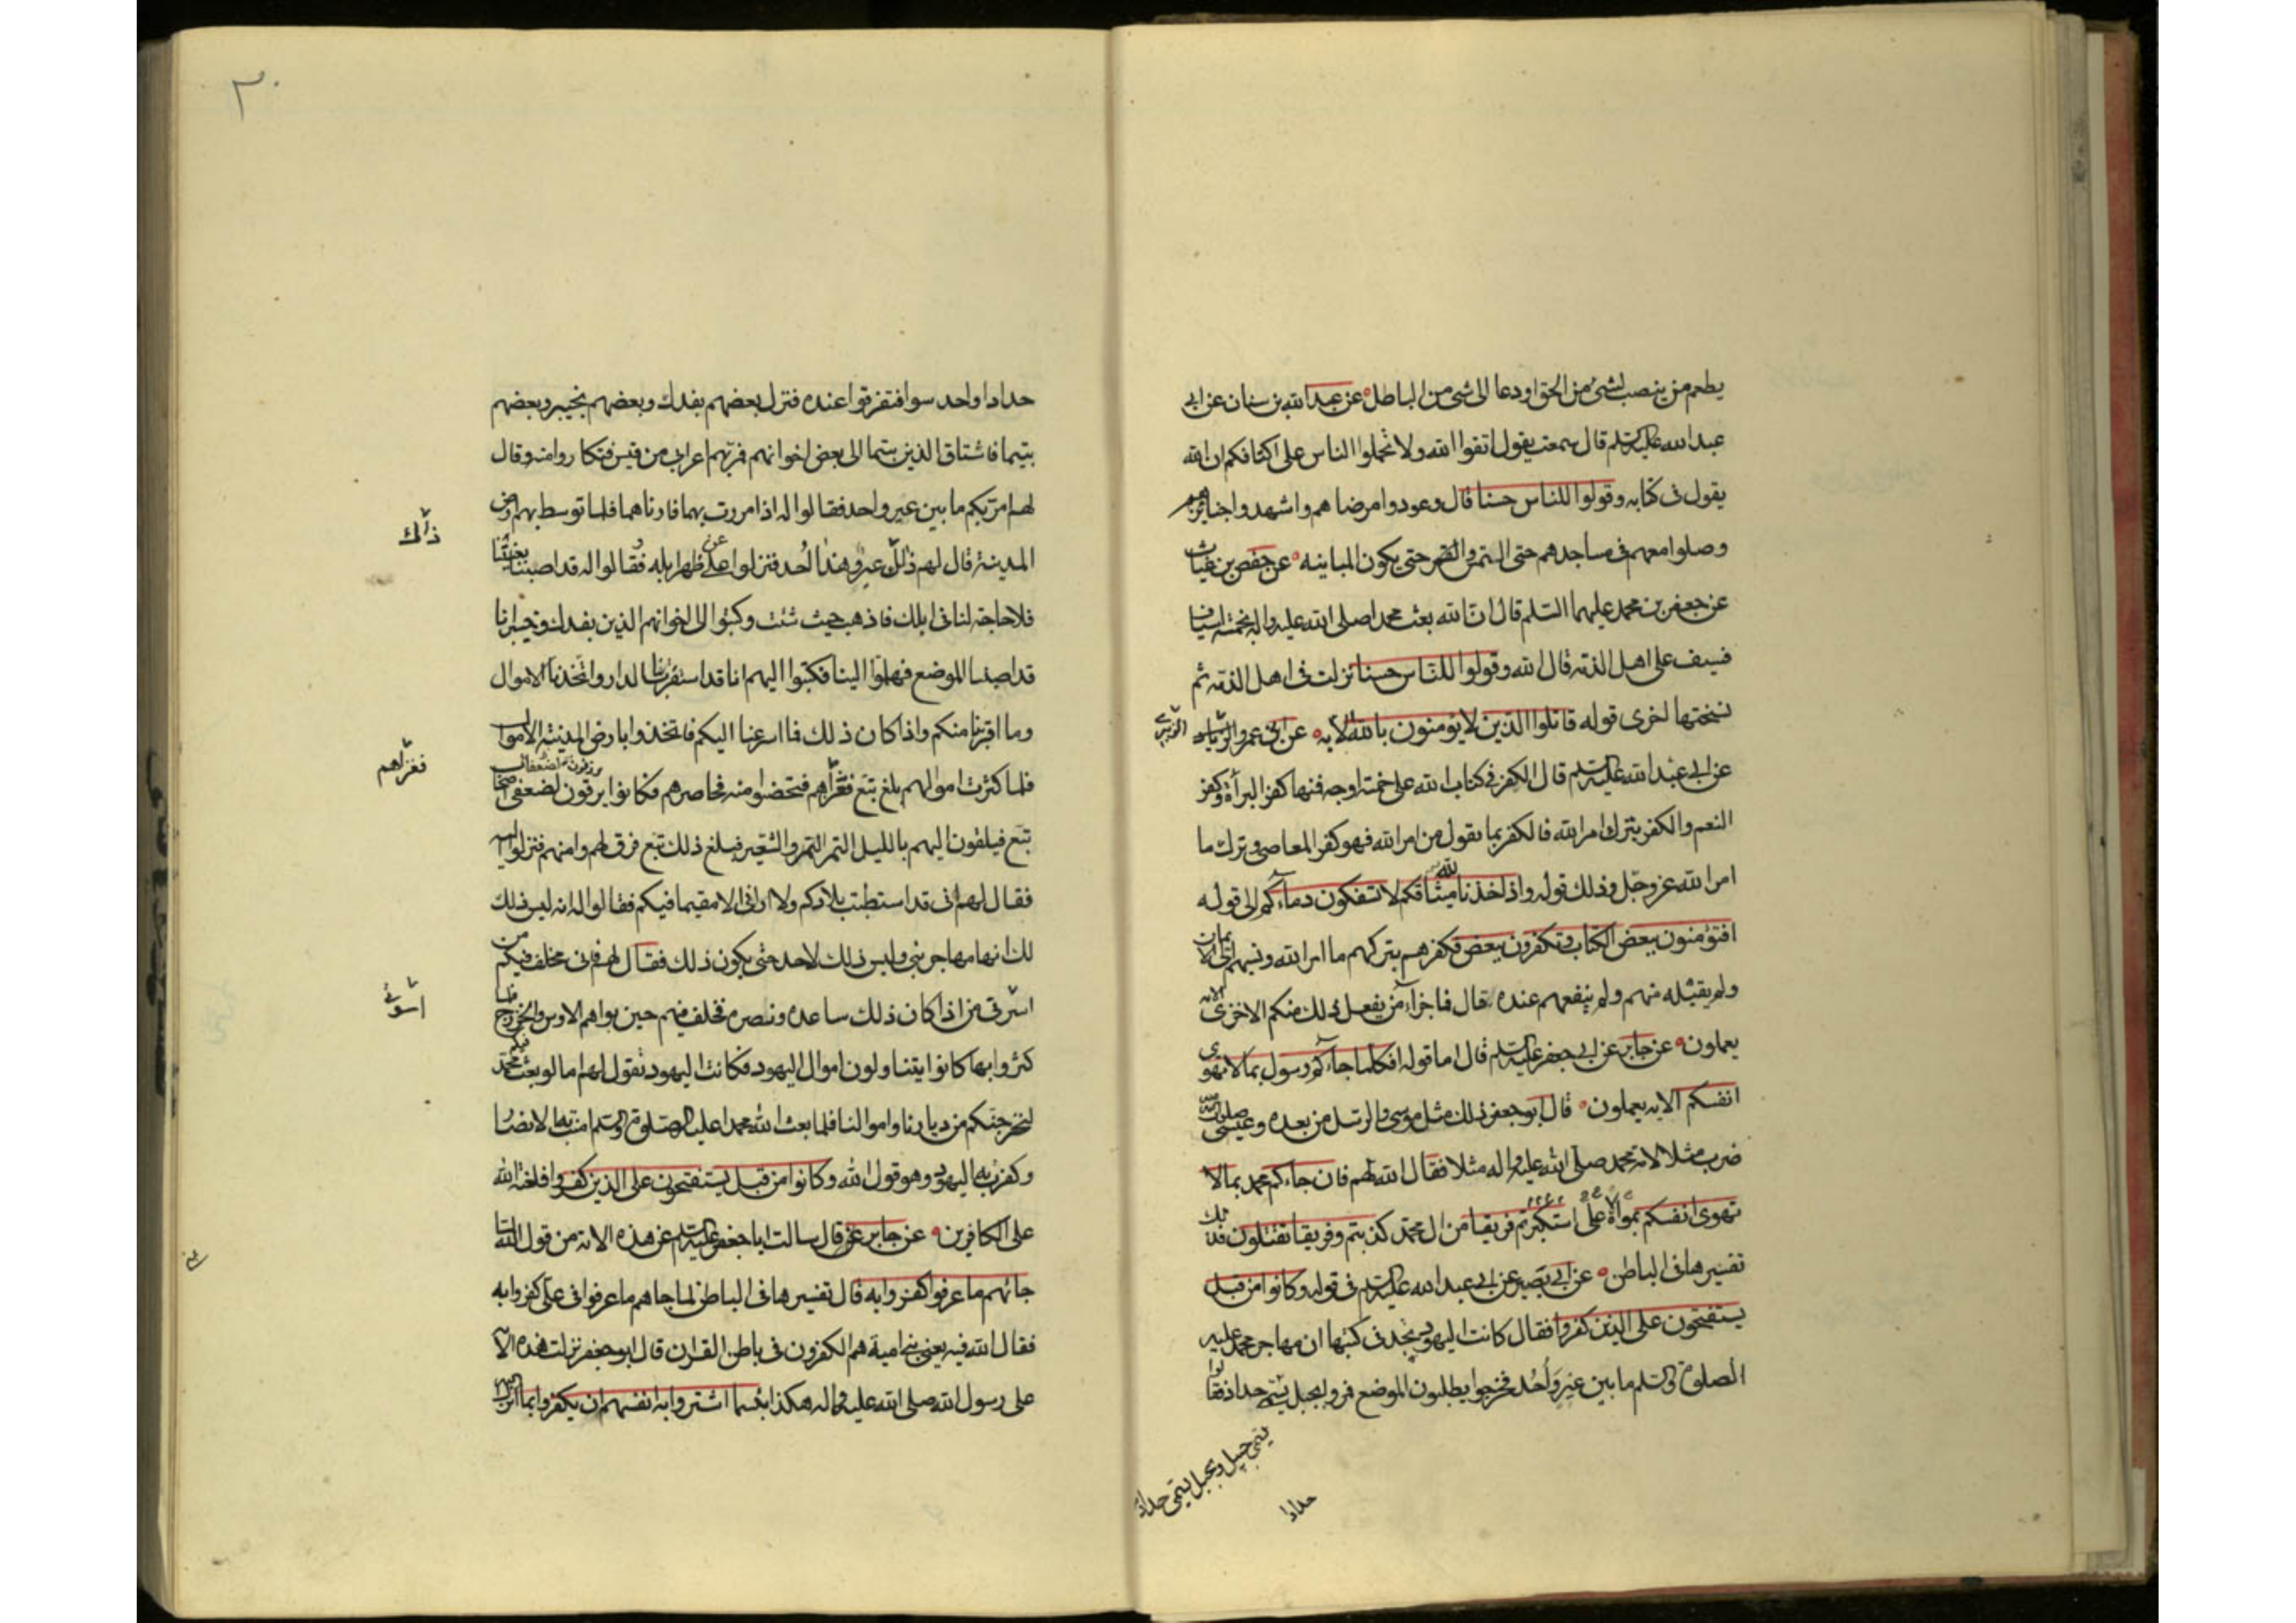 يطعم من ينصب لشئ من الحق او دعا الى شئ من الباطل عن عبد الله بن سنان عن ابى
عبد الله عليه السلم قال سمعته يقول اتقوا الله ولا تحملوا الناس على اكتافكم ان الله
يقول فى كتابه وقولوا للناس حسنا قال وعودوا مرضاهم واشهدوا جنايزهم
وصلوا معهم فى مساجدهم حتى النفس حتى يكون المباينه عن حفص بن غياث
عن جعفر بن محمد عليهما السلم قال ان الله بعث محمدا صلى الله عليه واله بخمسة اسياف
فسيف على اهل الذمة قال الله وقولوا للناس حسنا نزلت فى اهل الذمة ثم
نسختها اخرى قوله قاتلوا الذين لا يؤمنون بالله الايه عن ابى عمرو الزبيرى
عن ابى عبد الله عليه السلم قال الكفر فى كتاب الله على خمسة اوجه فمنها كفر البرأة وكفر
النعم والكفر بترك امر الله فالكفر بما نقول من امر الله فهو كفر المعاصى وترك ما
امر الله عز وجل وذلك قوله واذ اخذنا ميثاقكم لا تسفكون دماءكم الى قوله
افتؤمنون ببعض الكتاب وتكفرون ببعض فكفرهم بتركهم ما امر الله ونسبهم الى الايمان
ولم يقبله منهم ولم ينفعهم عنده قال فما جزاء من يفعل ذلك منكم الا خزى الايه
يعملون عن جابر عن ابى جعفر عليه السلم قال اما قوله افكلما جاءكم رسول بما لا تهوى
انفسكم الايه يعملون قال ابو جعفر ذلك مثل موسى والرسل من بعده وعيسى صلوات الله
ضرب مثلا لامة محمد صلى الله عليه واله مثلا فقال الله لهم فان جاءكم محمد بما لا
تهوى انفسكم بموالاة على استكبرتم فريقا من ال محمد كذبتم وفريقا تقتلون فذلك
تفسيرها فى الباطن عن ابى بصير عن ابى عبد الله عليه السلم فى قوله وكانوا من قبل
يستفتحون على الذين كفروا فقال كانت اليهود تجد فى كتبها ان مهاجر محمد عليه
الصلوة والسلم ما بين عير واحد فخرجوا يطلبون الموضع فمروا بجبل يسمى حداد فقالوا
حدادا
حداد واحد سوا فتفرقوا عنده فنزل بعضهم بفدك وبعضهم بخيبر وبعضهم
بتيما فاشتاق الذين بتيما الى بعض اخوانهم فمر بهم اعرابى من قيس فتكاروا منه وقال
لهم امر بكم ما بين عير واحد فقالوا له اذا مررت بهما فارناهما فلما توسط بهم ارض
المدينة قال لهم ذلك عير وهذا احد فنزلوا عن ظهر ابله فقالوا له قد اصبنا بغيتنا
فلا حاجة لنا فى ابلك فاذهب حيث شئت وكتبوا الى اخوانهم الذين بفدك وخيبر انا
قد اصبنا الموضع فهلموا الينا فكتبوا اليهم انا قد استقرت بنا الدار واتخذنا الاموال
وما اقربنا منكم واذا كان ذلك فما اسرعنا اليكم فاتخذوا بارض المدينة الاموال
فلما كثرت اموالهم بلغ تبع فغزاهم فتحصنوا منه فحاصرهم فكانوا يرقون لضعفى اصحاب
تبع فيلقون اليهم بالليل التمر والشعير فبلغ ذلك تبع فرق لهم وامنهم فنزلوا اليه
فقال لهم انى قد استطبت بلادكم ولا ارانى الا مقيما فيكم فقالوا له انه ليس ذلك
لك انها مهاجر نبى وليس ذلك لاحد حتى يكون ذلك فقال لهم فانى مخلف فيكم من
اسرتى من اذا كان ذلك ساعده ونصره فخلف فيهم حين بواهم الاوس والخزرج فلما
كثروا بها كانوا يتناولون اموال اليهود فكانت اليهود تقول لهم اما لو بعث محمد
لنخرجنكم من ديارنا واموالنا فلما بعث الله محمدا عليه الصلوة والسلم امنت به الانصار
وكفرت به اليهود وهو قول الله وكانوا من قبل يستفتحون على الذين كفروا فلعنة الله
على الكافرين عن جابر قال سالت ابا جعفر عليه السلم عن هذه الاية من قول الله لما
جائهم ما عرفوا كفروا به قال تفسيرها فى الباطن لما جاهم ما عرفوا فى على كفروا به
فقال الله فيه يعنى بنى امية هم الكفرون فى باطن القران قال ابو جعفر نزلت هذه الاية
على رسول الله صلى الله عليه واله هكذا بئسما اشتروا به انفسهم ان يكفروا بما انزل الله
ذلك
فغزاهم